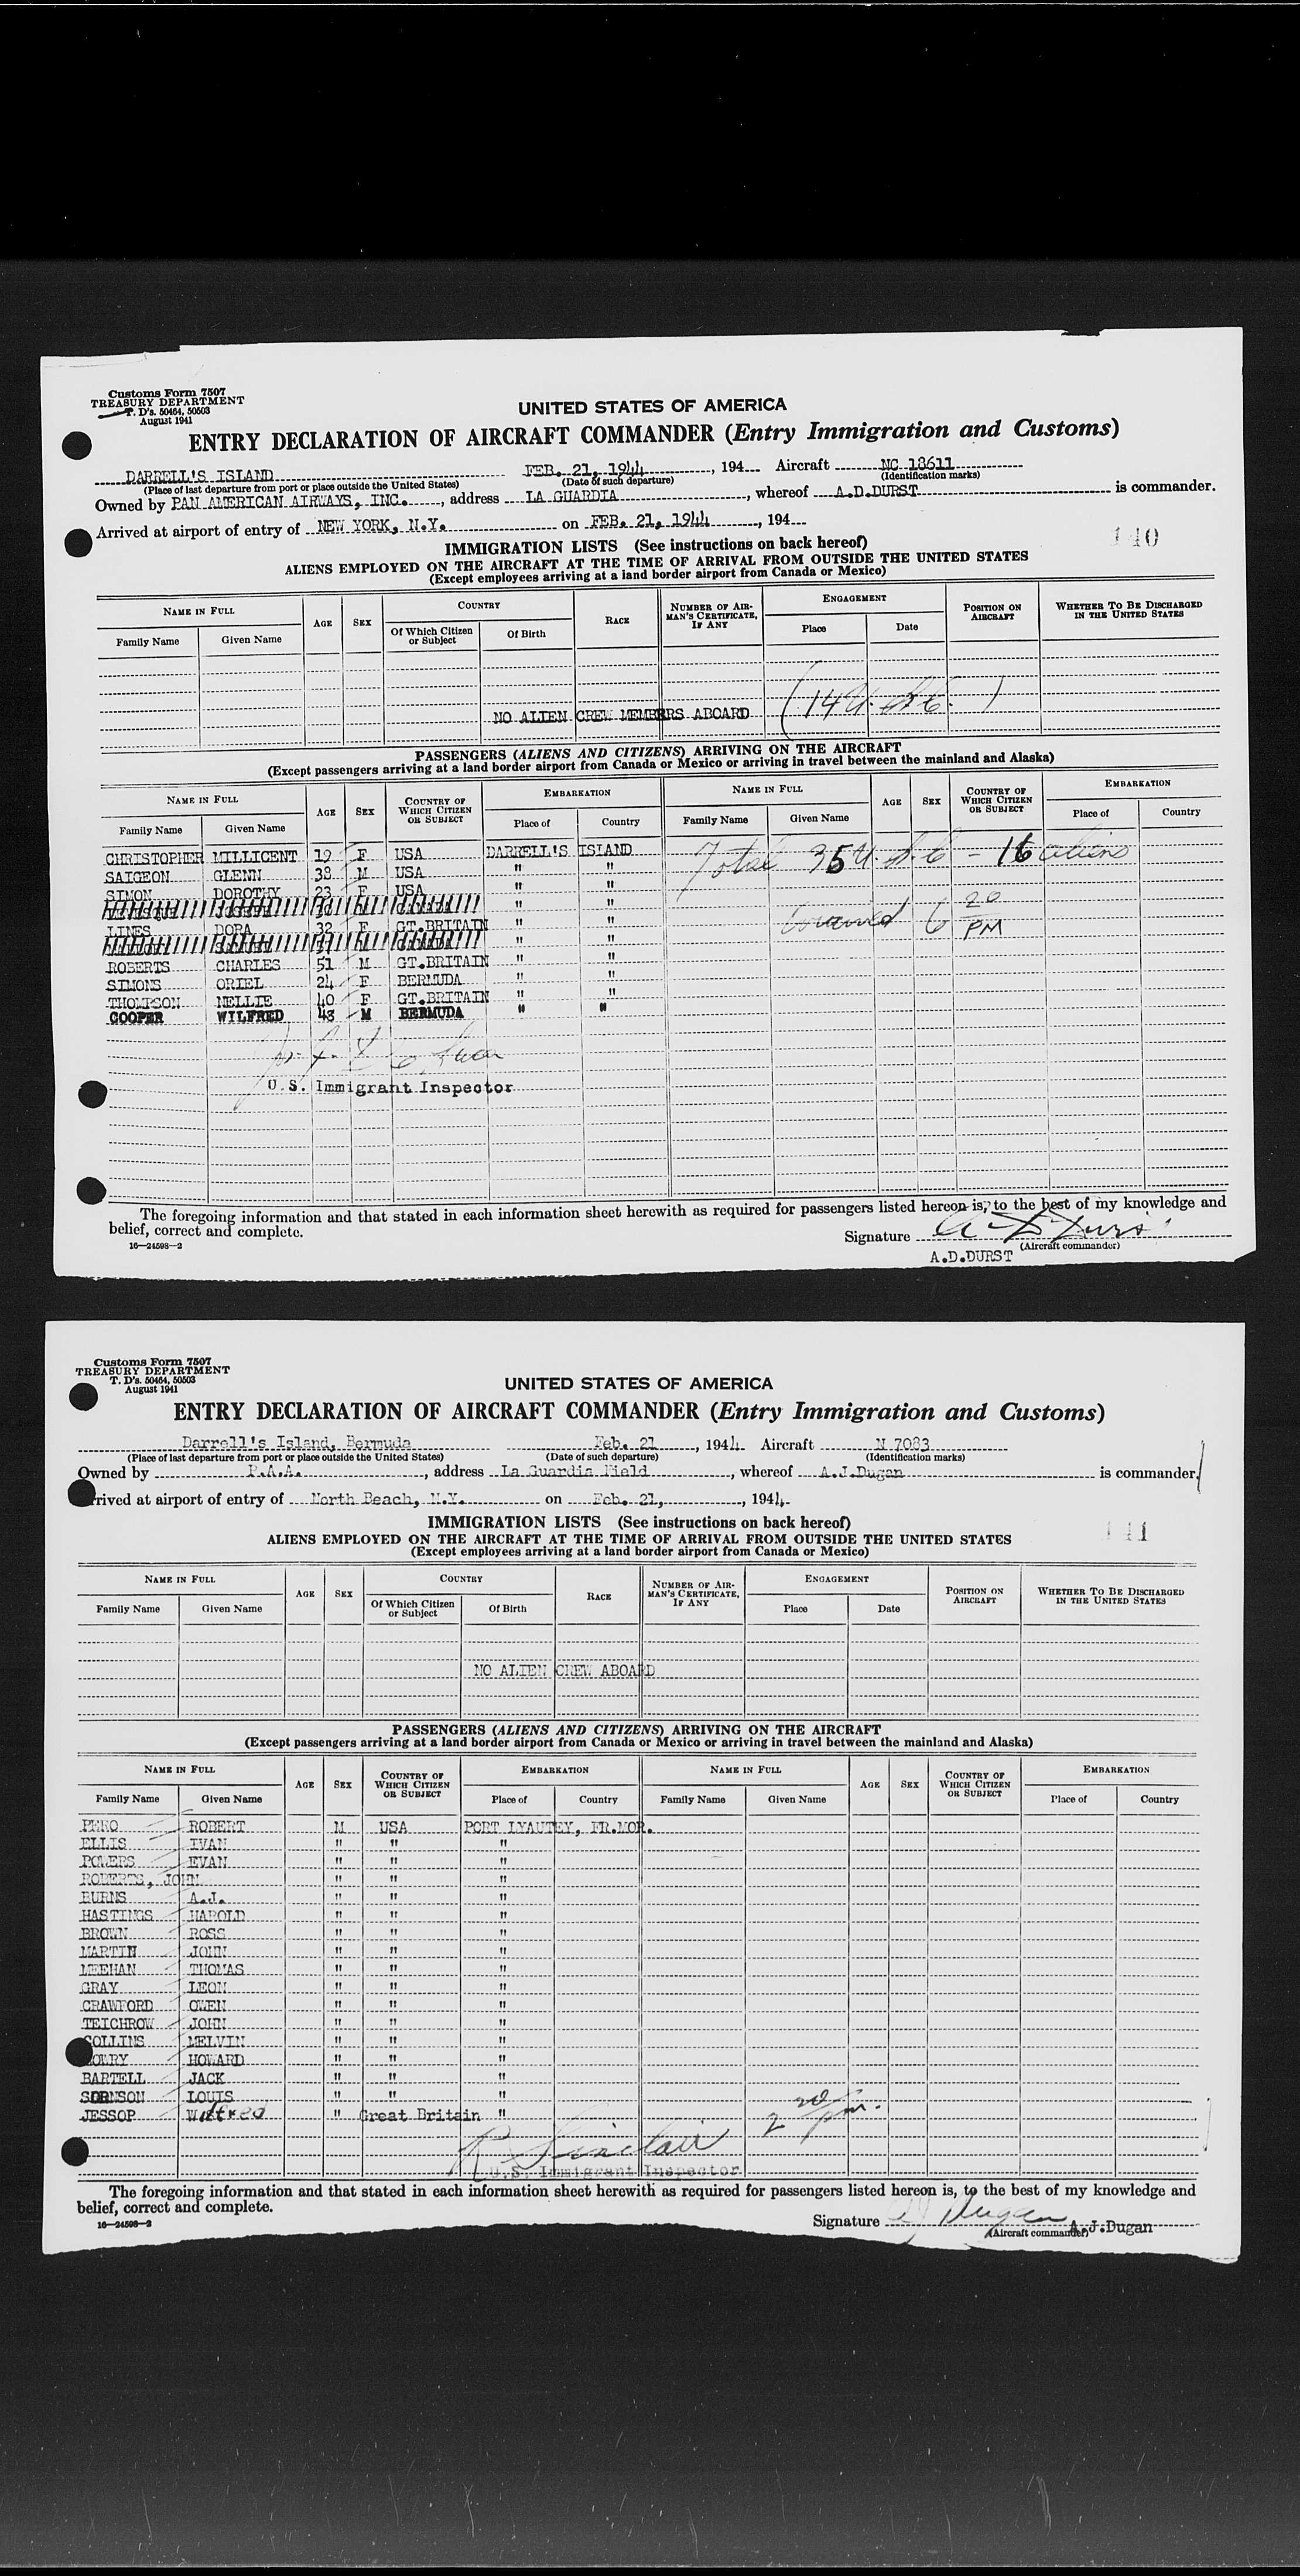 Customs Form 7507
TREASURY DEPARTMENT
T. D's. 50464, 50503
August 1941
UNITED STATES OF AMERICA
ENTRY DECLARATION OF AIRCRAFT COMMANDER (Entry Immigration and Customs)
DARRELL'S ISLAND FEB. 21, 1944, 194 Aircraft NC 18611
(Place of last departure from port or place outside the United States) (Date of such departure) (Identification marks)
Owned by PAN AMERICAN AIRWAYS, INC., address LA GUARDIA, whereof A.D.DURST is commander.
Arrived at airport of entry of NEW YORK, N.Y. on FEB. 21, 1944, 194
140
IMMIGRATION LISTS (See instructions on back hereof)
ALIENS EMPLOYED ON THE AIRCRAFT AT THE TIME OF ARRIVAL FROM OUTSIDE THE UNITED STATES
(Except employees arriving at a land border airport from Canada or Mexico)
NAME IN FULL AGE SEX COUNTRY RACE NUMBER OF AIRMAN'S CERTIFICATE, IF ANY ENGAGEMENT POSITION ON AIRCRAFT WHETHER TO BE DISCHARGED IN THE UNITED STATES
Family Name Given Name Of Which Citizen or Subject Of Birth Place Date
NO ALIEN CREW MEMBERS ABOARD
PASSENGERS (ALIENS AND CITIZENS) ARRIVING ON THE AIRCRAFT
(Except passengers arriving at a land border airport from Canada or Mexico or arriving in travel between the mainland and Alaska)
NAME IN FULL AGE SEX COUNTRY OF WHICH CITIZEN OR SUBJECT EMBARKATION NAME IN FULL AGE SEX COUNTRY OF WHICH CITIZEN OR SUBJECT EMBARKATION
Family Name Given Name Place of Country Family Name Given Name Place of Country
CHRISTOPHER MILLICENT 19 F USA DARRELL'S ISLAND Total 35 16 aliens
SAIGEON GLENN 38 M USA " "
SIMON DOROTHY 23 F USA " "
" "
LINES DORA 32 F GT.BRITAIN " " 6 20 PM
" "
ROBERTS CHARLES 51 M GT.BRITAIN " "
SIMONS ORIEL 24 F BERMUDA " "
THOMPSON NELLIE 40 F GT.BRITAIN " "
COOPER WILFRED 48 M BERMUDA " "
U.S. Immigrant Inspector
The foregoing information and that stated in each information sheet herewith as required for passengers listed hereon is, to the best of my knowledge and
belief, correct and complete.
16—24598—2
Signature A. D. Durst
(Aircraft commander)
A.D.DURST
Customs Form 7507
TREASURY DEPARTMENT
T. D's. 50464, 50503
August 1941
UNITED STATES OF AMERICA
ENTRY DECLARATION OF AIRCRAFT COMMANDER (Entry Immigration and Customs)
Darrell's Island, Bermuda Feb. 21, 1944 Aircraft N 7083
(Place of last departure from port or place outside the United States) (Date of such departure) (Identification marks)
Owned by P.A.A., address La Guardia Field, whereof A.J.Dugan is commander.
Arrived at airport of entry of North Beach, N.Y. on Feb. 21, 1944
141
IMMIGRATION LISTS (See instructions on back hereof)
ALIENS EMPLOYED ON THE AIRCRAFT AT THE TIME OF ARRIVAL FROM OUTSIDE THE UNITED STATES
(Except employees arriving at a land border airport from Canada or Mexico)
NAME IN FULL AGE SEX COUNTRY RACE NUMBER OF AIRMAN'S CERTIFICATE, IF ANY ENGAGEMENT POSITION ON AIRCRAFT WHETHER TO BE DISCHARGED IN THE UNITED STATES
Family Name Given Name Of Which Citizen or Subject Of Birth Place Date
NO ALIEN CREW ABOARD
PASSENGERS (ALIENS AND CITIZENS) ARRIVING ON THE AIRCRAFT
(Except passengers arriving at a land border airport from Canada or Mexico or arriving in travel between the mainland and Alaska)
NAME IN FULL AGE SEX COUNTRY OF WHICH CITIZEN OR SUBJECT EMBARKATION NAME IN FULL AGE SEX COUNTRY OF WHICH CITIZEN OR SUBJECT EMBARKATION
Family Name Given Name Place of Country Family Name Given Name Place of Country
PERO ROBERT M USA PORT LYAUTEY, FR.MOR.
ELLIS IVAN " " "
POWERS EVAN " " "
ROBERTS, JOHN " " "
BURNS A.J. " " "
HASTINGS HAROLD " " "
BROWN ROSS " " "
MARTIN JOHN " " "
MEEHAN THOMAS " " "
GRAY LEON " " "
CRAWFORD OWEN " " "
TEICHROW JOHN " " "
COLLINS MELVIN " " "
HOWARD " " "
BARTELL JACK " " "
LOUIS " " "
JESSOP Wilfred " Great Britain " 2 20 pm.
R Sinclair
U.S. Immigrant Inspector
The foregoing information and that stated in each information sheet herewith as required for passengers listed hereon is, to the best of my knowledge and
belief, correct and complete.
16—24598—2
Signature A J Dugan
(Aircraft commander) A.J.Dugan